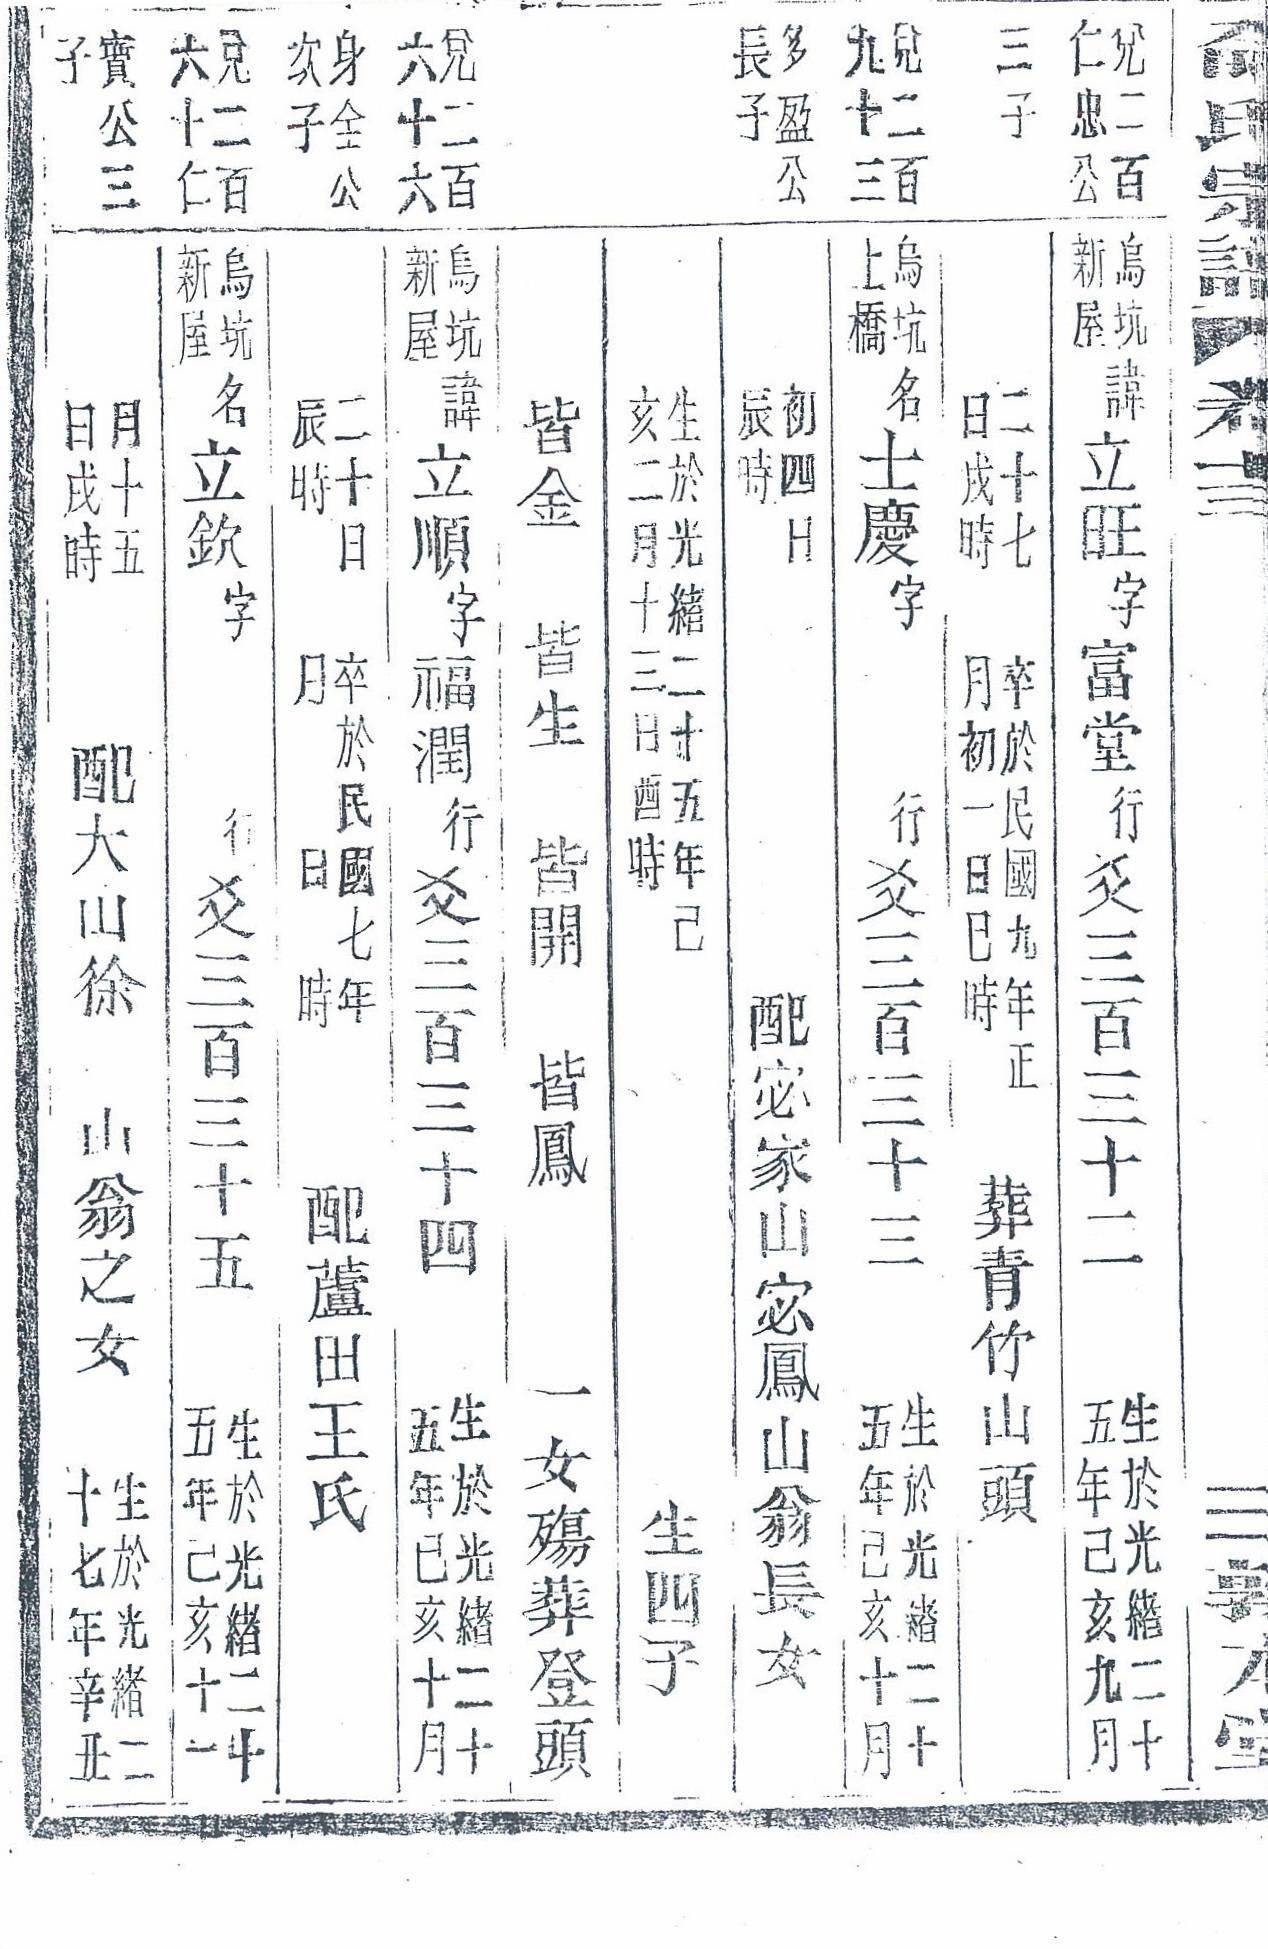 氏宗譜
敦本堂
兌二百
仁忠公
三子
兌二百
九十三
多盈公
長子
兌二百
六十六
身全公
次子
兌二百
六十仁
寶公三
子
烏坑
新屋
諱立旺字富堂行爻三百三十二
生於光緒二十
五年己亥九月
二十七
日戌時
卒於民國九年正
月初一日巳時
葬青竹山頭
烏坑
上橋
名士慶字 行爻三百三十三
生於光緒二十
五年己亥十月
初四日
辰時
配宓家山宓鳳山翁長女
生於光緒二十五年己
亥二月十三日酉時
生四子
皆金 皆生 皆開 皆鳳 一女殤葬登頭
烏坑
新屋
諱立順字福潤行爻三百三十四
生於光緒二十
五年己亥十月
二十日
辰時
卒於民國七年
月 日 時
配蘆田王氏
烏坑
新屋
名立欽字 行爻三百三十五
生於光緒二十
五年己亥十一
月十五
日戌時
配大山徐 山翁之女
生於光緒二
十七年辛丑